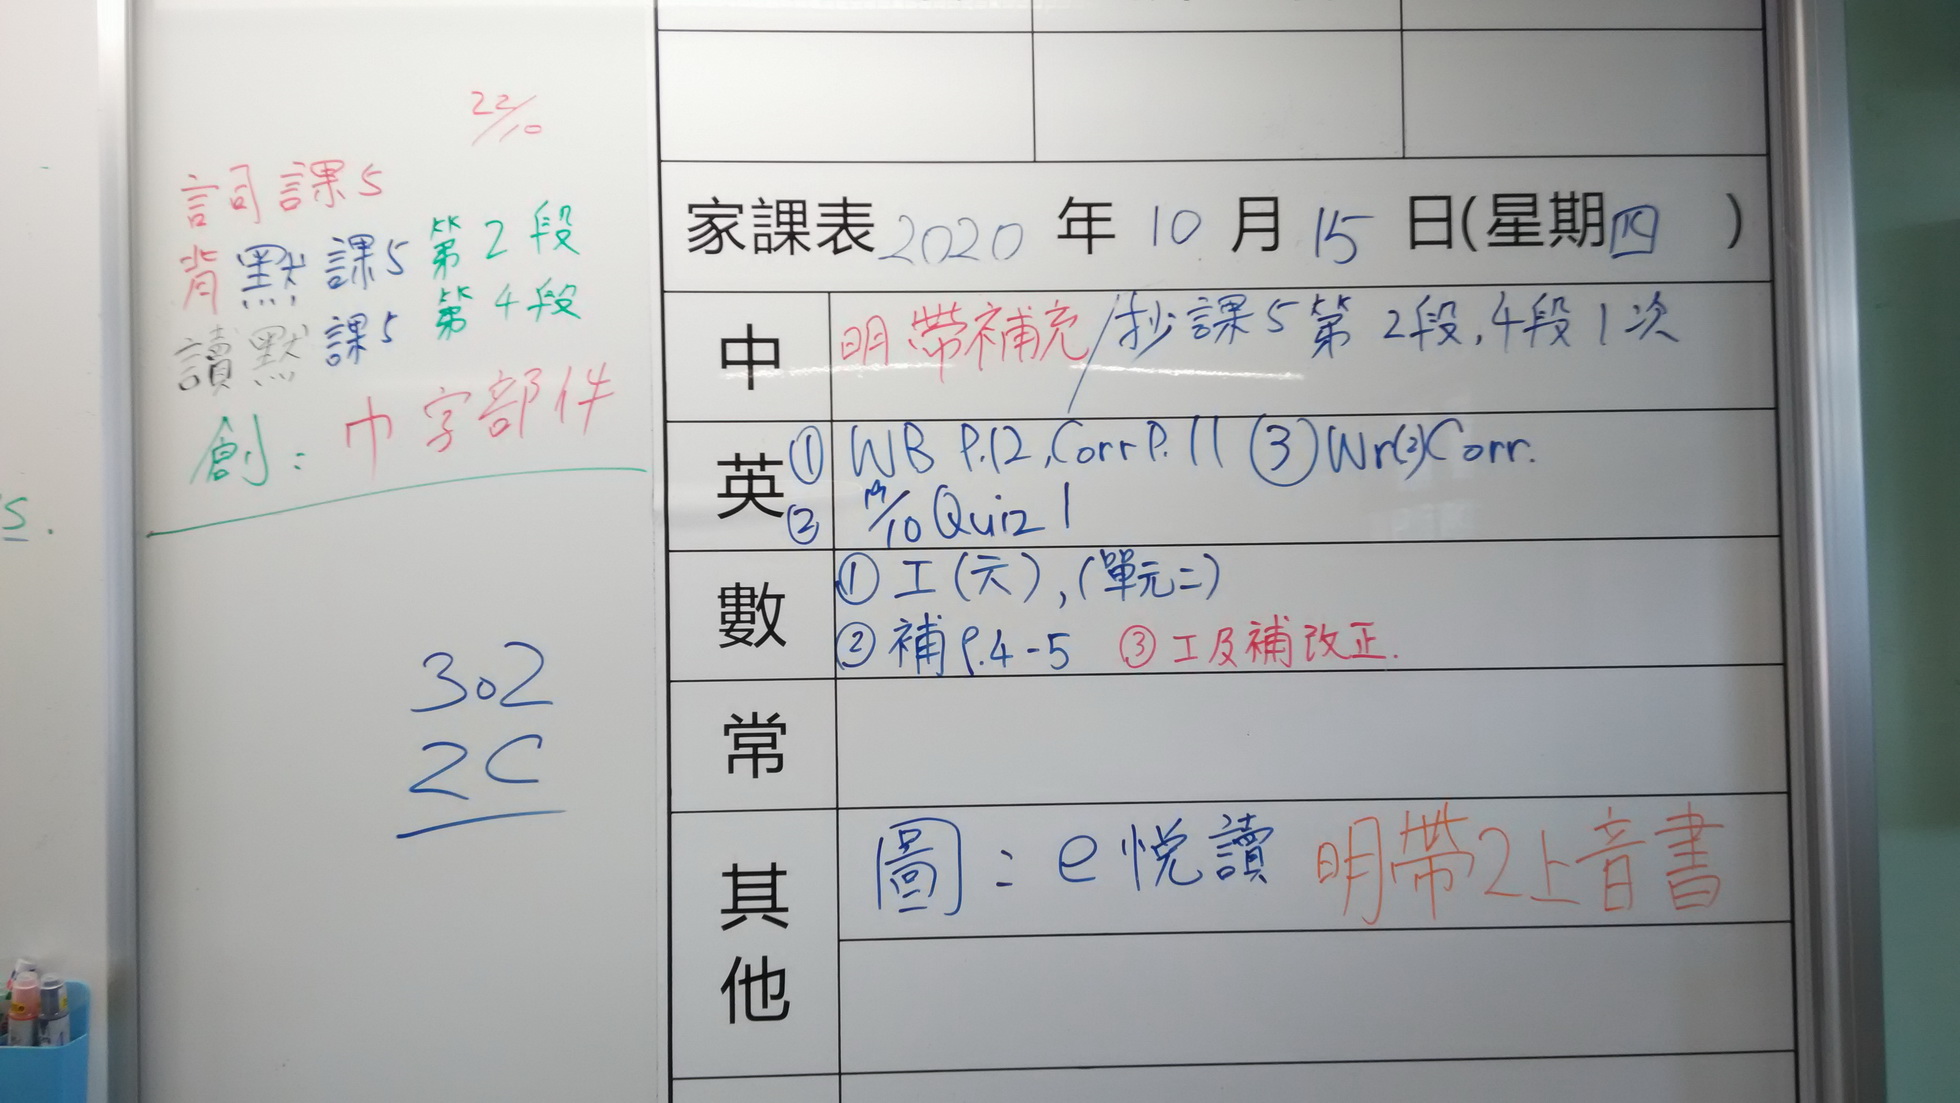 22/10
詞課5
背默課5第2段
讀默課5第4段
創：巾字部件
302
2C
s.
家課表2020年10月15日(星期四)
中 明帶補充/抄課5第2段,4段1次
英 ① WB P.12,Corr P.11 ③Wr(2)Corr.
② /10 Quiz 1
數 ① 工(六),(單元二)
② 補P.4-5 ③工及補改正.
常
其他 圖：e悅讀 明帶2上音書